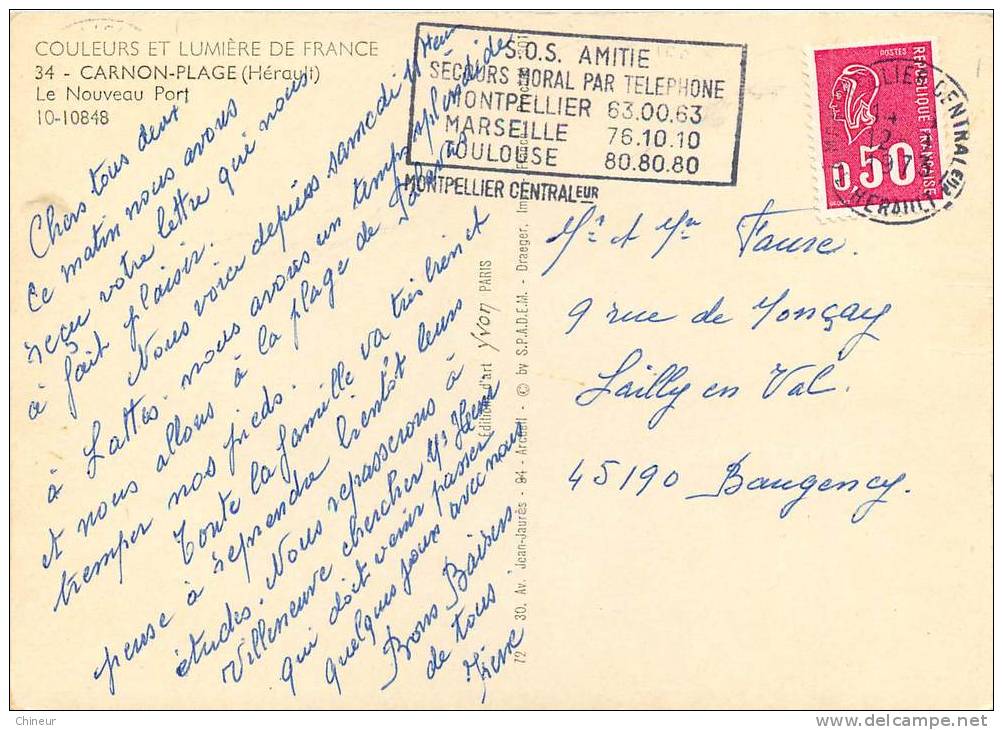 COULEURS ET LUMIÈRE DE FRANCE
34 - CARNON-PLAGE (Hérault)
Le Nouveau Port
10-10848
S.O.S. AMITIE
SECOURS MORAL PAR TELEPHONE
MONTPELLIER 63.00.63
MARSEILLE 76.10.10
TOULOUSE 80.80.80
MONTPELLIER CENTRALEUR
POSTES
REPUBLIQUE FRANÇAISE
0.50
CENTRALEUR
HERAULT
Chers tous deux
Ce matin nous avons
reçu votre lettre qui nous
à fait plaisir.
Nous voici depuis samedi
à Lattes nous avons un temps splendide
et nous allons à la plage de Palavas
tremper nos pieds.
Toute la famille va très bien et
pense à reprendre bientôt leurs
études. Nous repasserons à
Villeneuve chercher
qui doit venir passer
quelques jours avec nous
Bons Baisers
de tous
Editions d'art yvon PARIS
72 30. Av. Jean-Jaurès - 94 - Arcueil - © by S.P.A.D.E.M. - Draeger, Imp.
Mr et Mme Fausse.
9 rue de Monçay
Lailly en Val.
45190 Baugency.
Chineur
delcampe.net